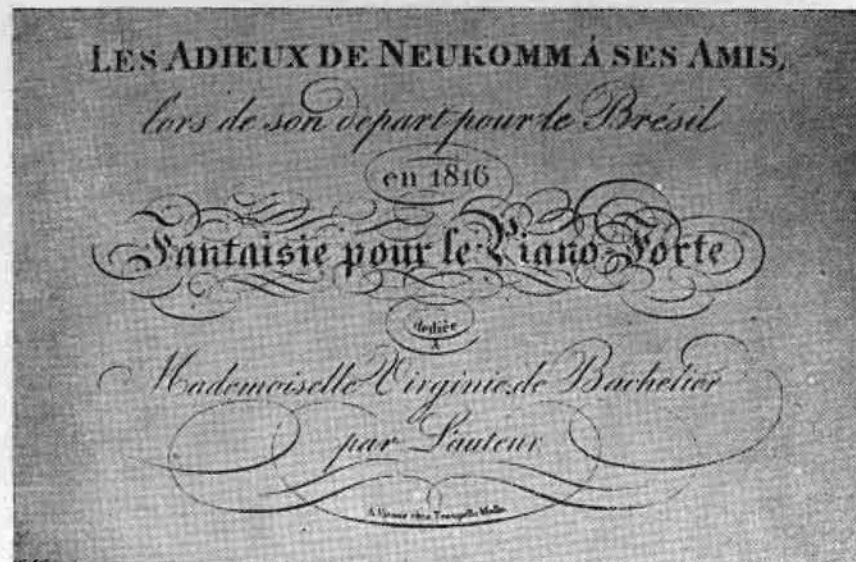 LES ADIEUX DE NEUKOMM À SES AMIS,
lors de son départ pour le Brésil
en 1816
Fantaisie pour le Piano-Forte
dediée
À
Mademoiselle Virginie de Bachelier
par L'auteur
à Vienne chez Tranquillo Mollo